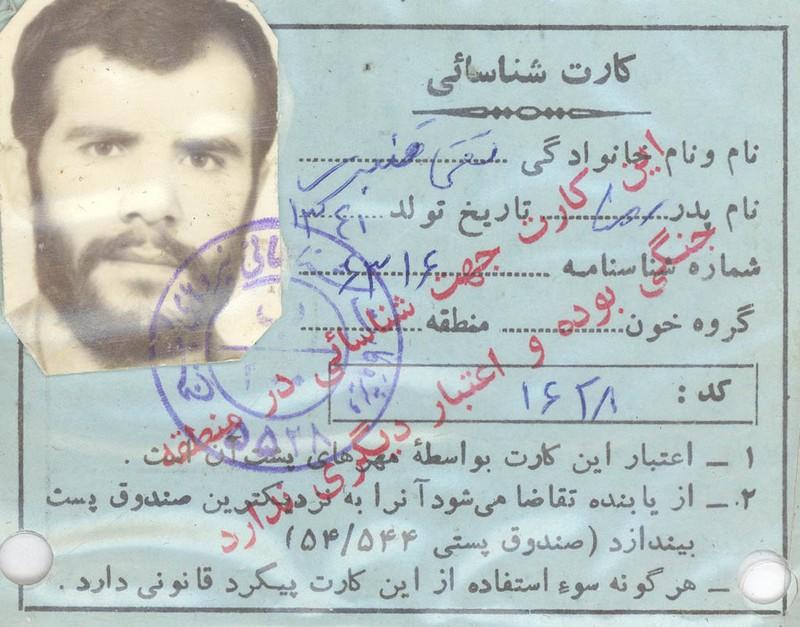 کارت شناسائی
نام ونام خانوادگی
نام پدر رضا تاریخ تولد ۱۳۴۱
شماره شناسنامه ۶۳۱۶
گروه خون منطقه
کد : ۱۶۲۸
۱ ـ اعتبار این کارت بواسطهٔ مهرهای پشت آن است .
۲ ـ از یابنده تقاضا می‌شود آنرا به نزدیکترین صندوق پست
بیندازد (صندوق پستی ۵۴/۵۴۴)
ـ هرگونه سوء استفاده از این کارت پیگرد قانونی دارد .
این کارت جهت شناسائی در منطقه
جنگی بوده و اعتبار دیگری ندارد